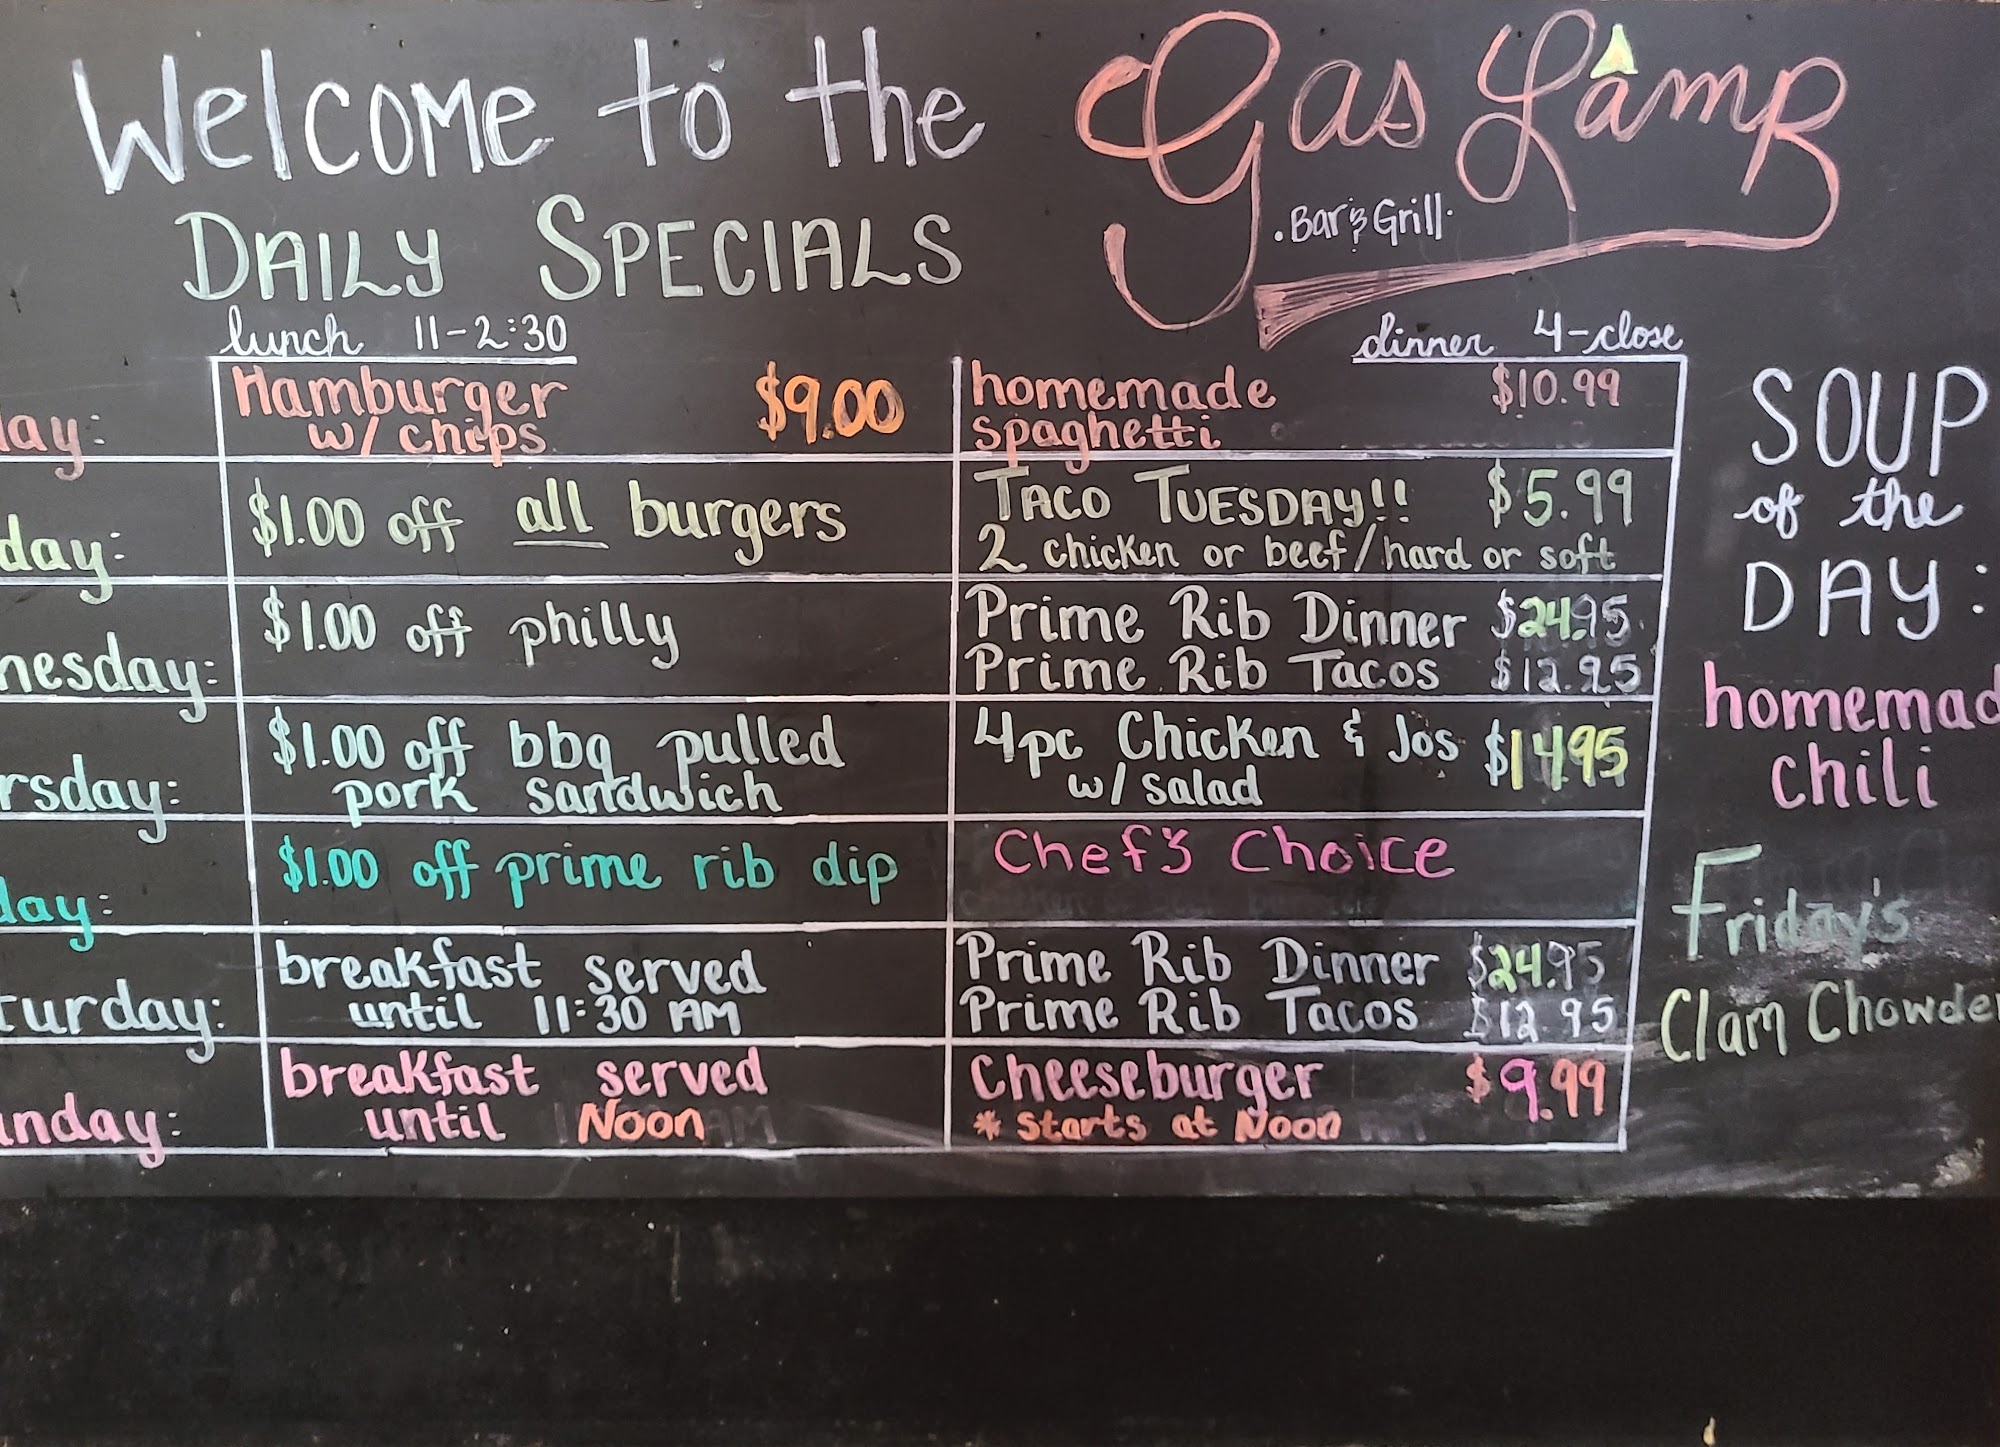 Welcome to the Gas Lamp
. Bar & Grill .
DAILY SPECIALS
lunch 11-2:30
dinner 4-close
day:
Hamburger $9.00
w/ chips
homemade $10.99
spaghetti
day:
$1.00 off all burgers
TACO TUESDAY!! $5.99
2 chicken or beef/hard or soft
nesday:
$1.00 off philly
Prime Rib Dinner $24.95
Prime Rib Tacos $12.95
rsday:
$1.00 off bbq pulled
pork sandwich
4pc Chicken & Jos $14.95
w/ salad
day:
$1.00 off prime rib dip
Chef's Choice
turday:
breakfast served
until 11:30 AM
Prime Rib Dinner $24.95
Prime Rib Tacos $12.95
unday:
breakfast served
until Noon
Cheeseburger $9.99
* Starts at Noon
SOUP
of the
DAY:
homemad
chili
Friday's
Clam Chowder